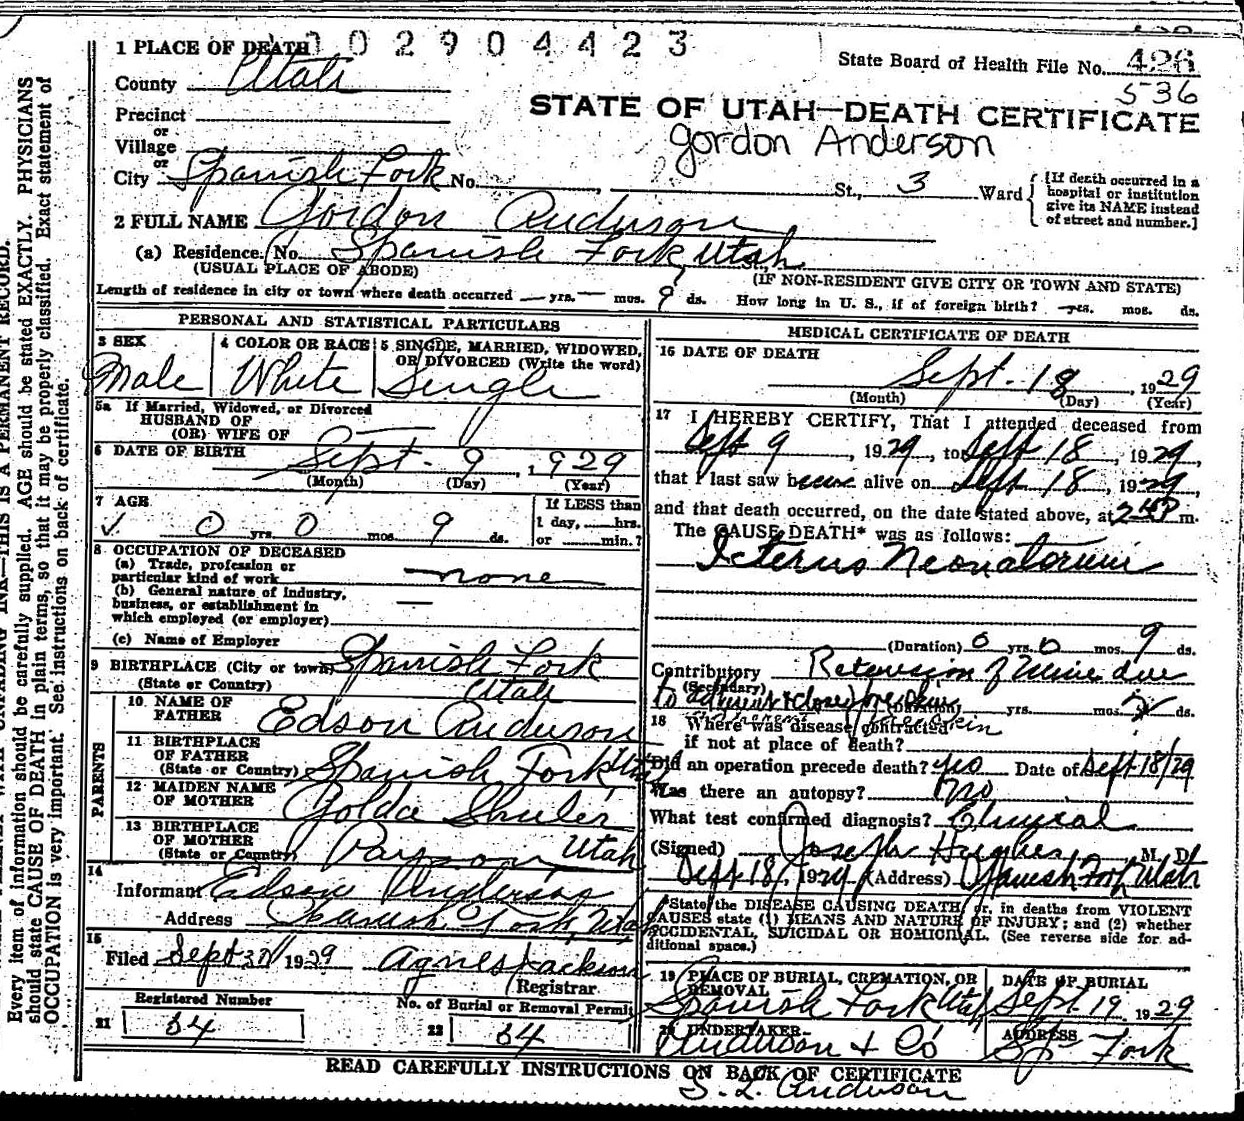 1 PLACE OF DEATH 0 0 2 9 0 4 4 2 3
State Board of Health File No. 426
536
County Utah
STATE OF UTAH—DEATH CERTIFICATE
Gordon Anderson
Precinct
or
Village
or
City Spanish Fork No. , St., 3 Ward
[If death occurred in a
hospital or institution
give its NAME instead
of street and number.]
2 FULL NAME Gordon Anderson
(a) Residence. No. Spanish Fork, Utah St.,
(USUAL PLACE OF ABODE) (IF NON-RESIDENT GIVE CITY OR TOWN AND STATE)
Length of residence in city or town where death occurred — yrs. — mos. 9 ds. How long in U. S., if of foreign birth? — yrs. mos. ds.
PERSONAL AND STATISTICAL PARTICULARS
3 SEX 4 COLOR OR RACE 5 SINGLE, MARRIED, WIDOWED,
OR DIVORCED (Write the word)
Male White Single
5a If Married, Widowed, or Divorced
HUSBAND OF
(OR) WIFE OF
6 DATE OF BIRTH Sept. 9, 1929
(Month) (Day) (Year)
7 AGE If LESS than
0 yrs. 0 mos. 9 ds. 1 day, hrs.
or min.?
8 OCCUPATION OF DECEASED
(a) Trade, profession or
particular kind of work none
(b) General nature of industry,
business, or establishment in
which employed (or employer) —
(c) Name of Employer
9 BIRTHPLACE (City or town) Spanish Fork
(State or Country) Utah
PARENTS
10 NAME OF
FATHER Edson Anderson
11 BIRTHPLACE
OF FATHER
(State or Country) Spanish Fork Utah
12 MAIDEN NAME
OF MOTHER Golda Shuler
13 BIRTHPLACE
OF MOTHER
(State or Country) Payson, Utah
14
Informant Edson Anderson
Address Spanish Fork, Utah
15
Filed Sept 1929 Agnes Jackson
Registrar
Registered Number No. of Burial or Removal Permit
21 54 22 54
MEDICAL CERTIFICATE OF DEATH
16 DATE OF DEATH
Sept. 18, 1929
(Month) (Day) (Year)
17 I HEREBY CERTIFY, That I attended deceased from
Sept 9, 1929, to Sept 18, 1929,
that I last saw alive on Sept 18, 1929,
and that death occurred, on the date stated above, at m.
The CAUSE DEATH* was as follows:
Icterus Neonatorum
(Duration) 0 yrs. 0 mos. 9 ds.
Contributory Retension of Urine due
(Secondary) to
(Duration) yrs. mos. ds.
18 Where was disease contracted
if not at place of death?
Did an operation precede death? yes Date of Sept 18/29
Was there an autopsy? No
What test confirmed diagnosis? Clinical
(Signed) Joseph Hughes M. D.
Sept 18, 1929 (Address) Spanish Fork Utah
*State the DISEASE CAUSING DEATH, or, in deaths from VIOLENT
CAUSES state (1) MEANS AND NATURE OF INJURY; and (2) whether
ACCIDENTAL, SUICIDAL OR HOMICIDAL. (See reverse side for ad-
ditional space.)
19 PLACE OF BURIAL, CREMATION, OR
REMOVAL
Spanish Fork Utah
DATE OF BURIAL
Sept. 19 1929
20 UNDERTAKER
Anderson & Co
ADDRESS
Sp. Fork
READ CAREFULLY INSTRUCTIONS ON BACK OF CERTIFICATE
S. L. Anderson
INK—THIS IS A PERMANENT RECORD.
Every item of information should be carefully supplied. AGE should be stated EXACTLY. PHYSICIANS
should state CAUSE OF DEATH in plain terms, so that it may be properly classified. Exact statement of
OCCUPATION is very important. See instructions on back of certificate.